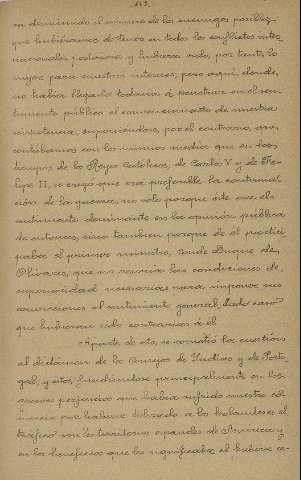 ra disminuido el número de los enemigos posibles
que hubiéramos de tener en todos los conflictos inter
nacionales posteriores y hubiera sido, por tanto, lo
mejor para nuestros intereses; pero aquí donde,
no había llegado todavía á penetrar en el sen-
timiento público el convencimiento de nuestra
impotencia, suponiéndose, por el contrario, que
contábamos con los mismos medios que en los
tiempos de los Reyes Católicos, de Carlos V y de Fe-
lipe II, se creyó que era preferible la continua-
ción de la guerra, no solo porque este era el
sentimiento dominante en la opinión pública
de entonces, sino tambien porque de él partici
paba el primer ministro, Conde Duque de
Olivares, que no reunia las condiciones de
superioridad necesarias para imponer sus
convicciones al sentimiento general, dado caso
que hubieran sido contrarias á él
Aparte de esto, se sometió la cuestión
al dictámen de los Consejos de Indias y de Portu
gal, y estos, fundándose principalmente en los
graves perjuicios que había sufrido nuestro co-
mercio por haberse dejado a los holandeses el
tráfico con los territorios españoles de América y
en los beneficios que les significaba el haberse